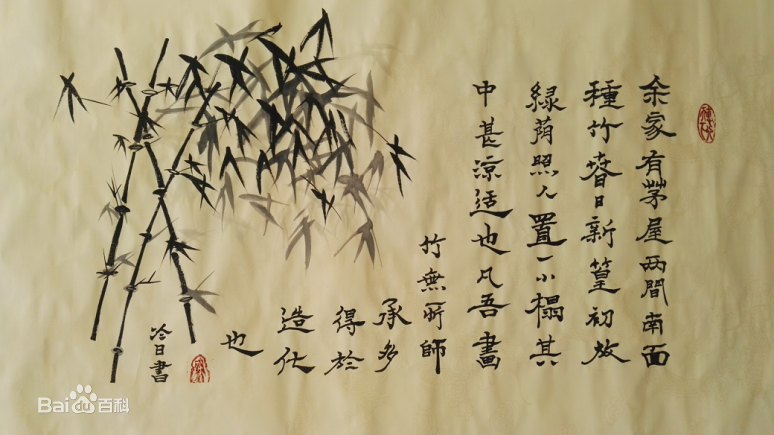 余家有茅屋两間南面
種竹春日新篁初放
緑荫照人置一小榻其
中甚凉适也凡吾畵
竹無所師
承多
得於
造化
也
冷日書
Bai百科